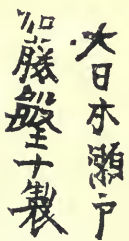 大日本瀬戸
加藤盤十製